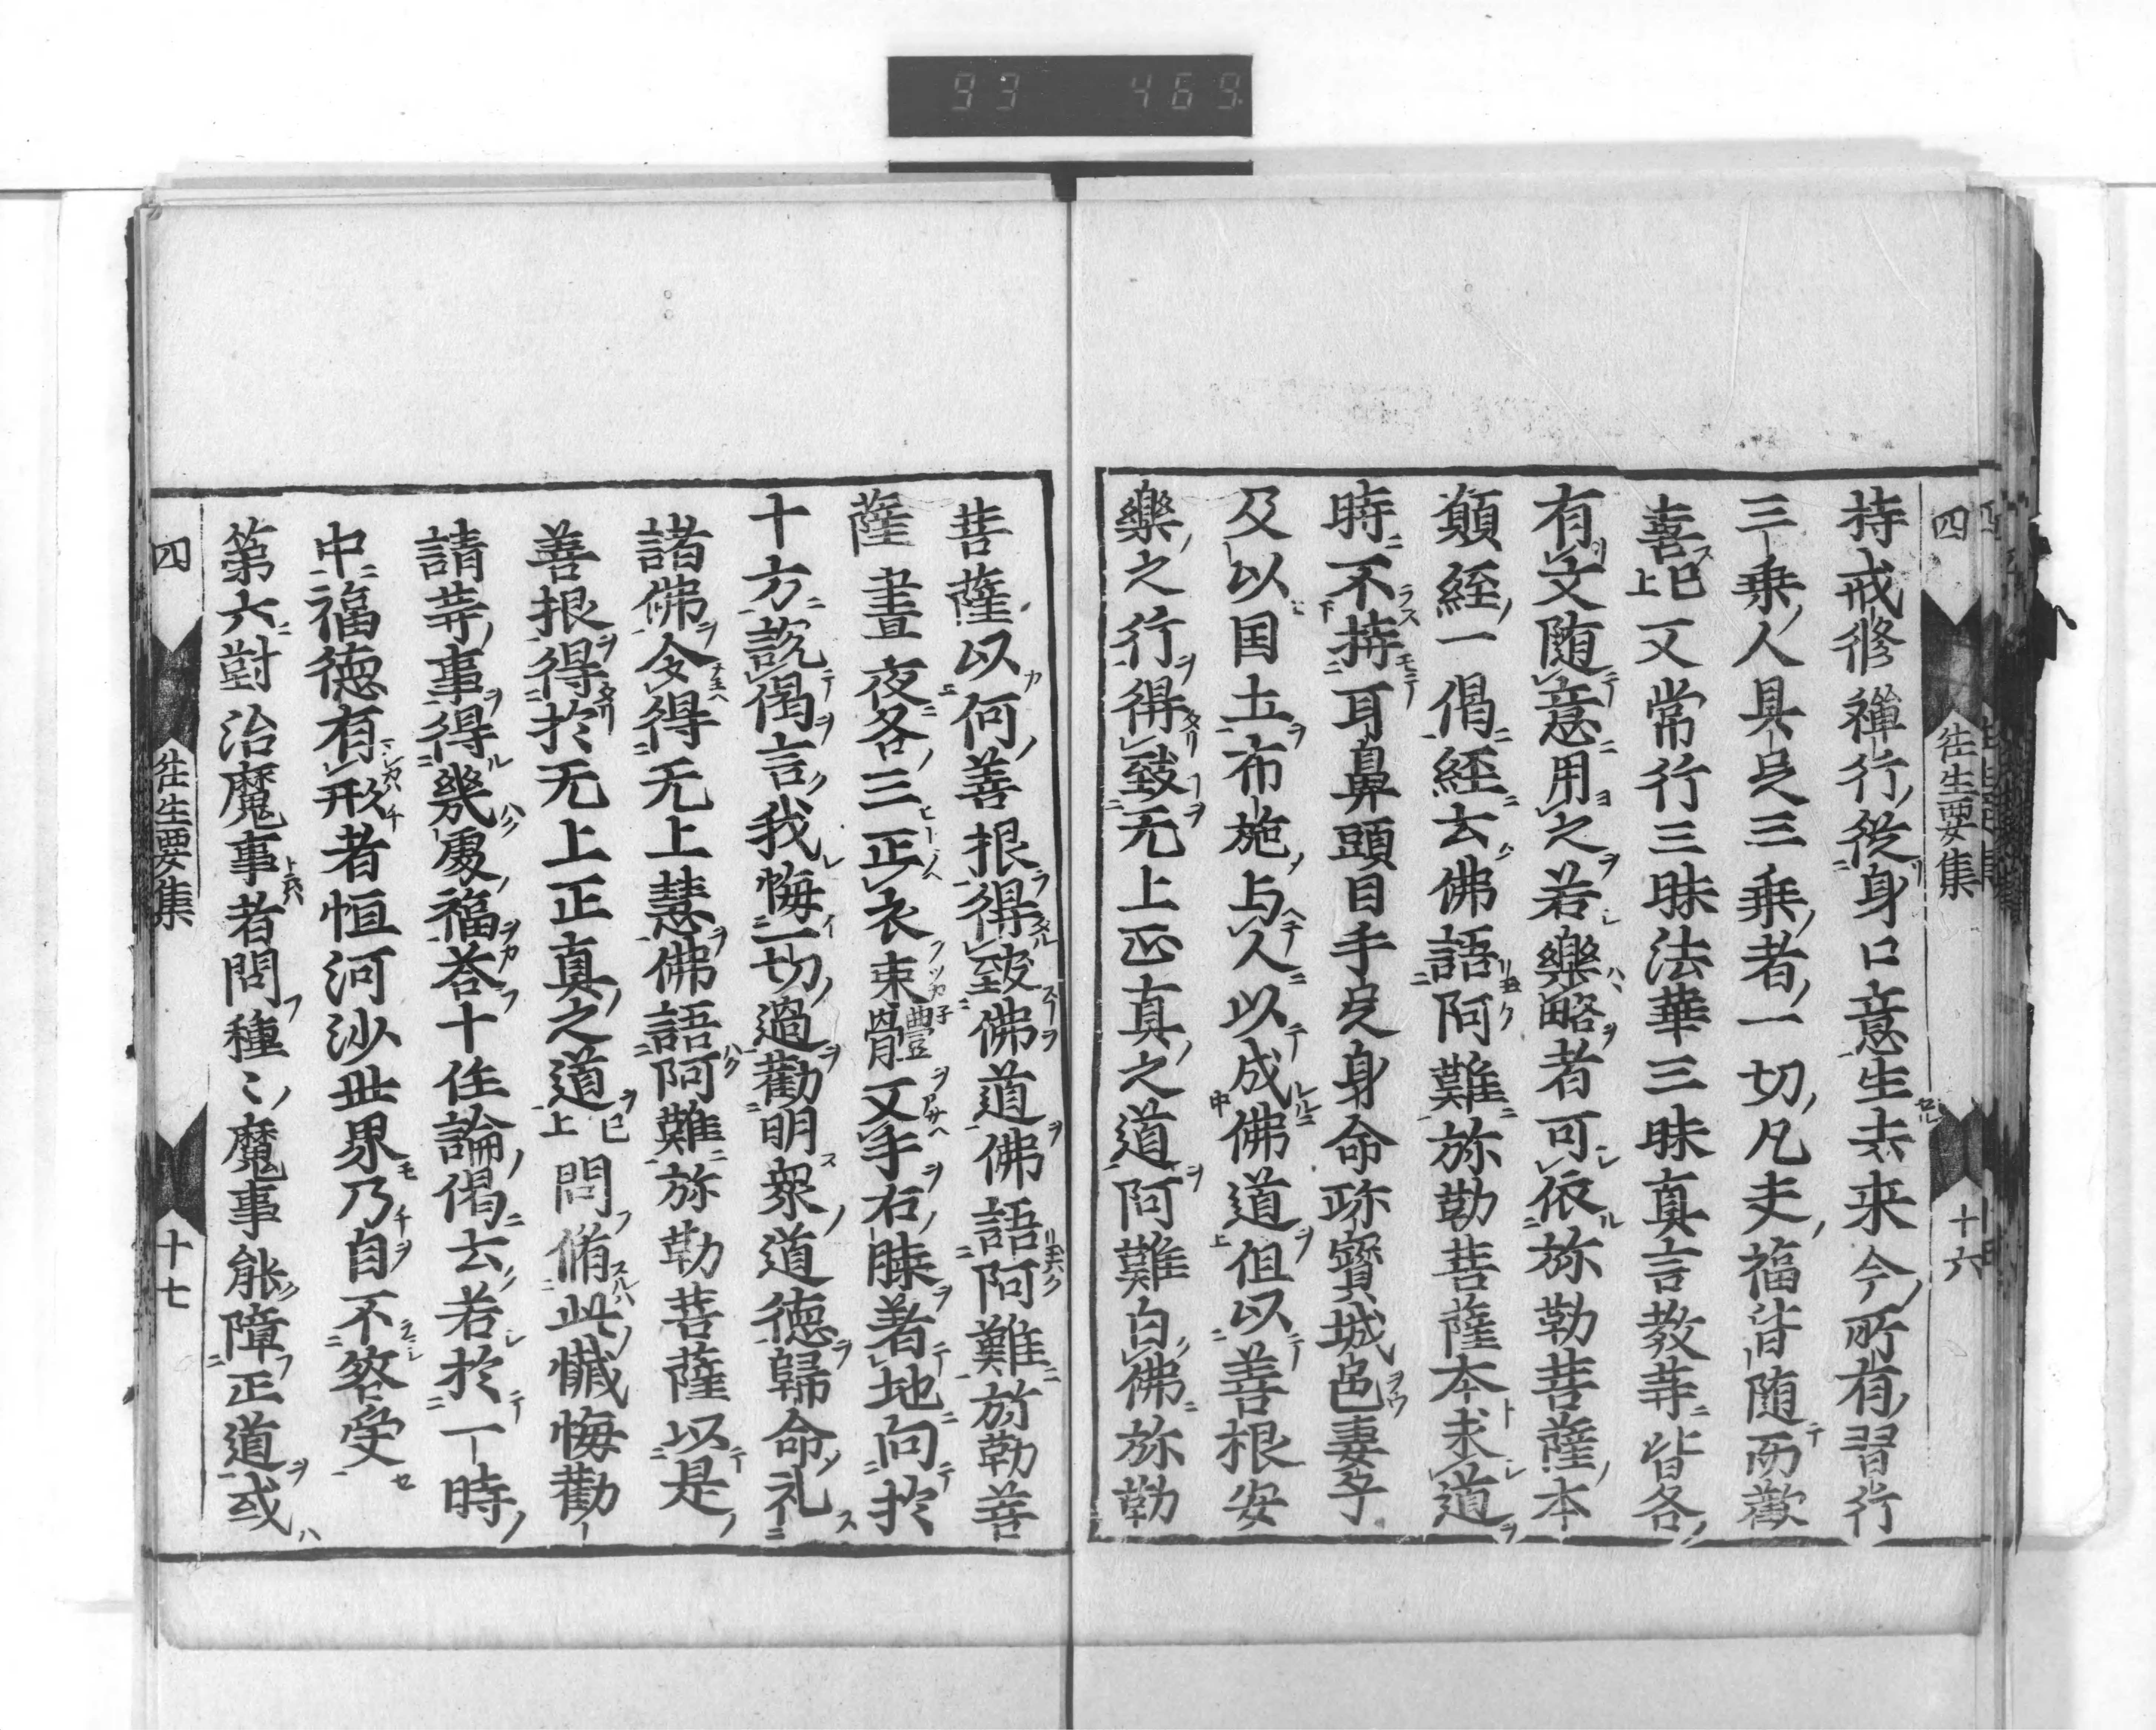 93 469
四 往生要集 十六
持戒修禅行従身口意生去来今所有習行
三乗人具足三乗者一切凡夫福皆随而歓
喜已上又常行三昧法華三昧真言教等皆各
有文随意用之若樂略者可依弥勒菩薩本
願経一偈経云佛語阿難弥勒菩薩本求道
時不持耳鼻頭目手足身命珎寳城邑妻子
及以国土布施与人以成佛道但以善根安
樂之行得致无上正真之道阿難白佛弥勒
菩薩以何善根得致佛道佛語阿難弥勒菩
薩晝夜各三正衣束體叉手右膝著地向於
十方説偈言我悔一切過勸助衆道德歸命礼
諸佛令得无上慧佛語阿難弥勒菩薩以是
善根得於无上正真之道已上問脩此懴悔勸
請等事得幾處福荅十住論偈云若於一時
中福德有形者恒河沙世界乃自不容受
第六對治魔事者問種〻魔事能障正道或
四 往生要集 十七